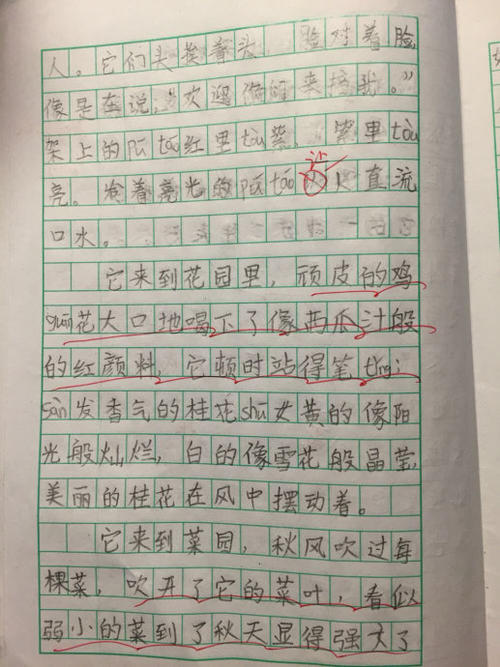 人。它们头挨着头 脸对着脸
像是在说:“欢迎你们来摘我。”
架上的pú táo红里tòu紫, 紫里tòu
亮。冷着亮光的pú táo 让人直流
口水。
它来到花园里,顽皮的鸡
guān花大口地喝下了像西瓜汁般
的红颜料,它顿时站得笔tǐng;
sàn发香气的桂花shù 黄的像阳
光般灿烂,白的像雪花般晶莹,
美丽的桂花在风中摆动着。
它来到菜园,秋风吹过每
棵菜,吹开了它的菜叶,看似
弱小的菜到了秋天显得强大了